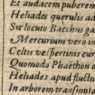 Et audacem puberem
Heliades querulis ad
Sic locuto Bacchus ga
Mercurium vero in
Celtis ve
Quomodo Phaethon a
Heliades apud fluct
In arborem transfo